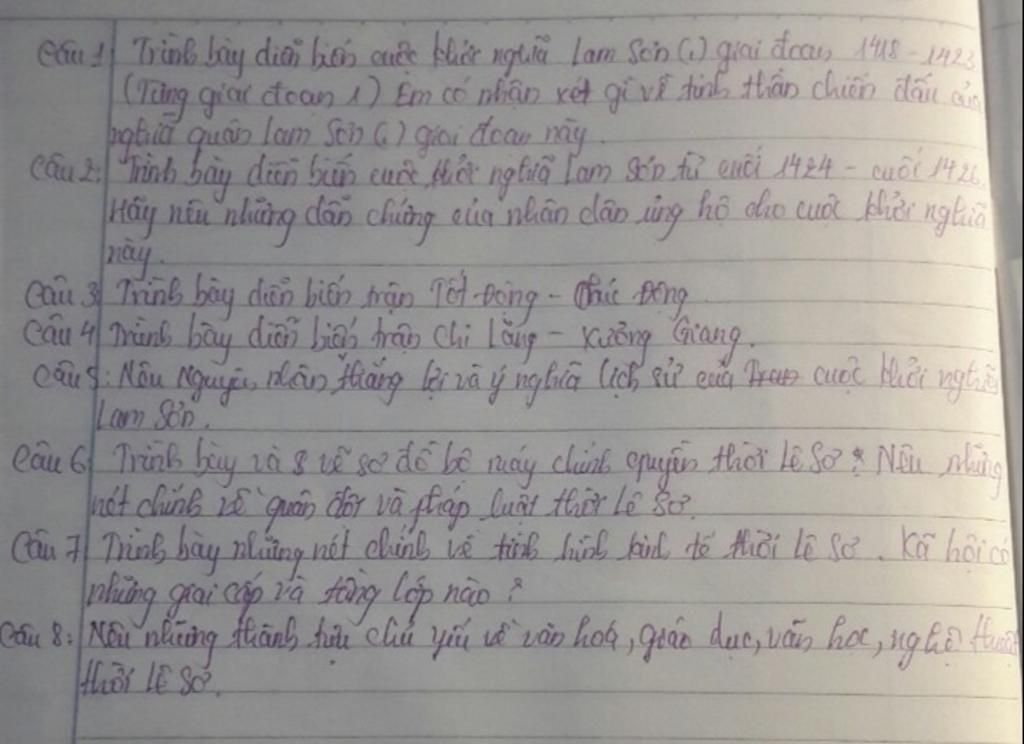 Câu 1 Trình bày diễn biến cuộc khởi nghĩa Lam Sơn (ở) giai đoạn 1418 - 1423
(Từng giai đoạn 1) Em có nhận xét gì về tinh thần chiến đấu của
nghĩa quân Lam Sơn (ở) giai đoạn này.
Câu 2: Trình bày diễn biến cuộc khởi nghĩa Lam Sơn từ cuối 1424 - cuối 1426.
Hãy nêu những dẫn chứng của nhân dân ủng hộ cho cuộc khởi nghĩa
này.
Câu 3 Trình bày diễn biến trận Tốt-Động - Chúc Động
Câu 4 Trình bày diễn biến trận Chi Lăng - Xương Giang.
Câu 5: Nêu Nguyên nhân thắng lợi và ý nghĩa lịch sử của cuộc khởi nghĩa
Lam Sơn.
Câu 6 Trình bày và vẽ sơ đồ bộ máy chính quyền thời Lê Sơ? Nêu những
nét chính về quân đội và pháp luật thời Lê Sơ.
Câu 7 Trình bày những nét chính về tình hình kinh tế thời Lê Sơ. Xã hội có
những giai cấp và tầng lớp nào?
Câu 8: Nêu những thành tựu chủ yếu về văn hoá, giáo dục, văn học, nghệ thuật
thời Lê Sơ.